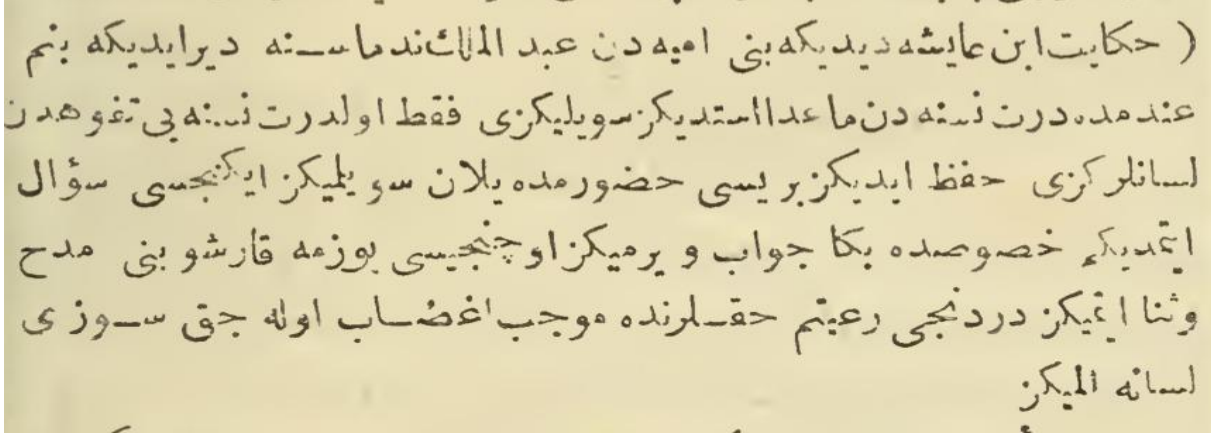 ( حكايت ابن عايشه ديديكه بنى اميه دن عبد الملك ندماسنه ديرايديكه بنم
عندمده درت نسنه دن ما عدا استديكز سويليكزى فقط اولدرت نسنه بى تفوهدن
لسانلركزى حفظ ايديكز بريسى حضورمده يلان سويليكز ايكنجسى سؤال
اتمديكم خصوصده بكا جواب ويرميكز اوچنجيسى يوزمه قارشو بنى مدح
وثنا اتميكز دردنجى رعيتم حقلرنده موجب اغضاب اوله جق سوزى
لسانه الميكز